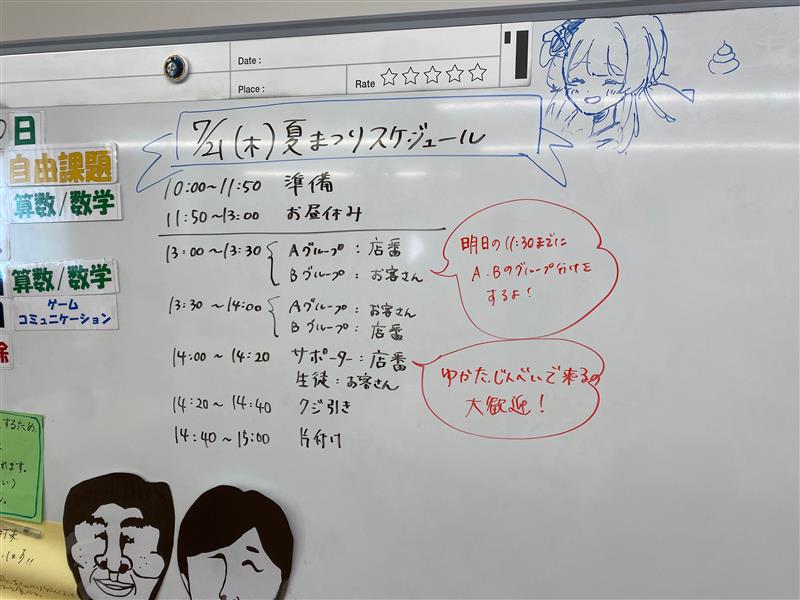 Date :
Place :
Rate
7/21 (木) 夏まつりスケジュール
10:00~11:50 準備
11:50~13:00 お昼休み
13:00~13:30 Aグループ : 店番
Bグループ : お客さん
13:30~14:00 Aグループ : お客さん
Bグループ : 店番
14:00~14:20 サポーター : 店番
生徒 : お客さん
14:20~14:40 クジ引き
14:40~15:00 片付け
明日の11:30までに
A.Bのグループ分けを
するよ!
ゆかた、じんべいで来るの
大歓迎!
日
自由課題
算数/数学
算数/数学
ゲーム
コミュニケーション
するため
れます。